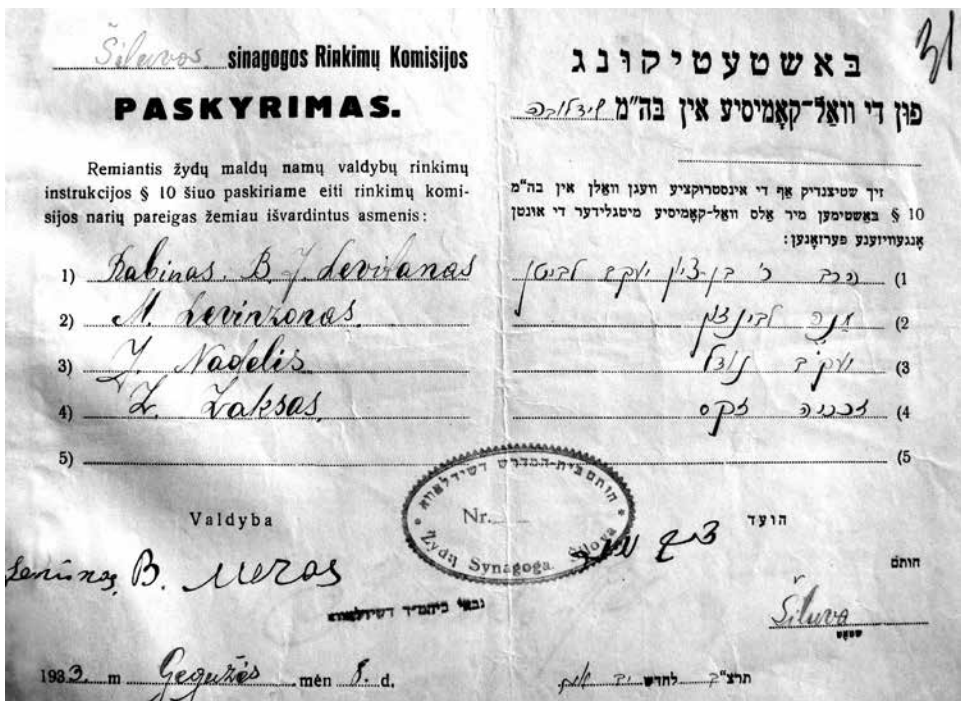 Šiluvos sinagogos Rinkimų Komisijos
PASKYRIMAS.
Remiantis žydų maldų namų valdybų rinkimų
instrukcijos § 10 šiuo paskiriame eiti rinkimų komi-
sijos narių pareigas žemiau išvardintus asmenis:
1) Rabinas B. J. Levitanas
2) M. Levinzonas
3) J. Nadelis
4) Z. Zaksas
5)
Valdyba
B. Meras
1933 m Gegužės mėn 8 d.
31
באַשטעטיקונג
פון די וואַל־קאָמיסיע אין בה"מ שידלובה
זיך שטיצנדיק אַף די אינסטרוקציע וועגן וואַלן אין בה"מ
§ 10 באַשטימען מיר אַלס וואַל־קאָמיסיע מיטגלידער די אונטן
אָנגעוויזענע פּערזאָנען:
1) הרב ר' בן-ציון יעקב לויטן
2) לוינזון
3) יעקב נודל
4) זכריה זקס
5)
הועד
חותם
Šiluva
שטאָט
תרצ"ב לחדש
חותם בית-המדרש דשידלאווא
Nr.
Žydų Synagoga Šilova
גבאי ביהמ"ד דשידלאווא